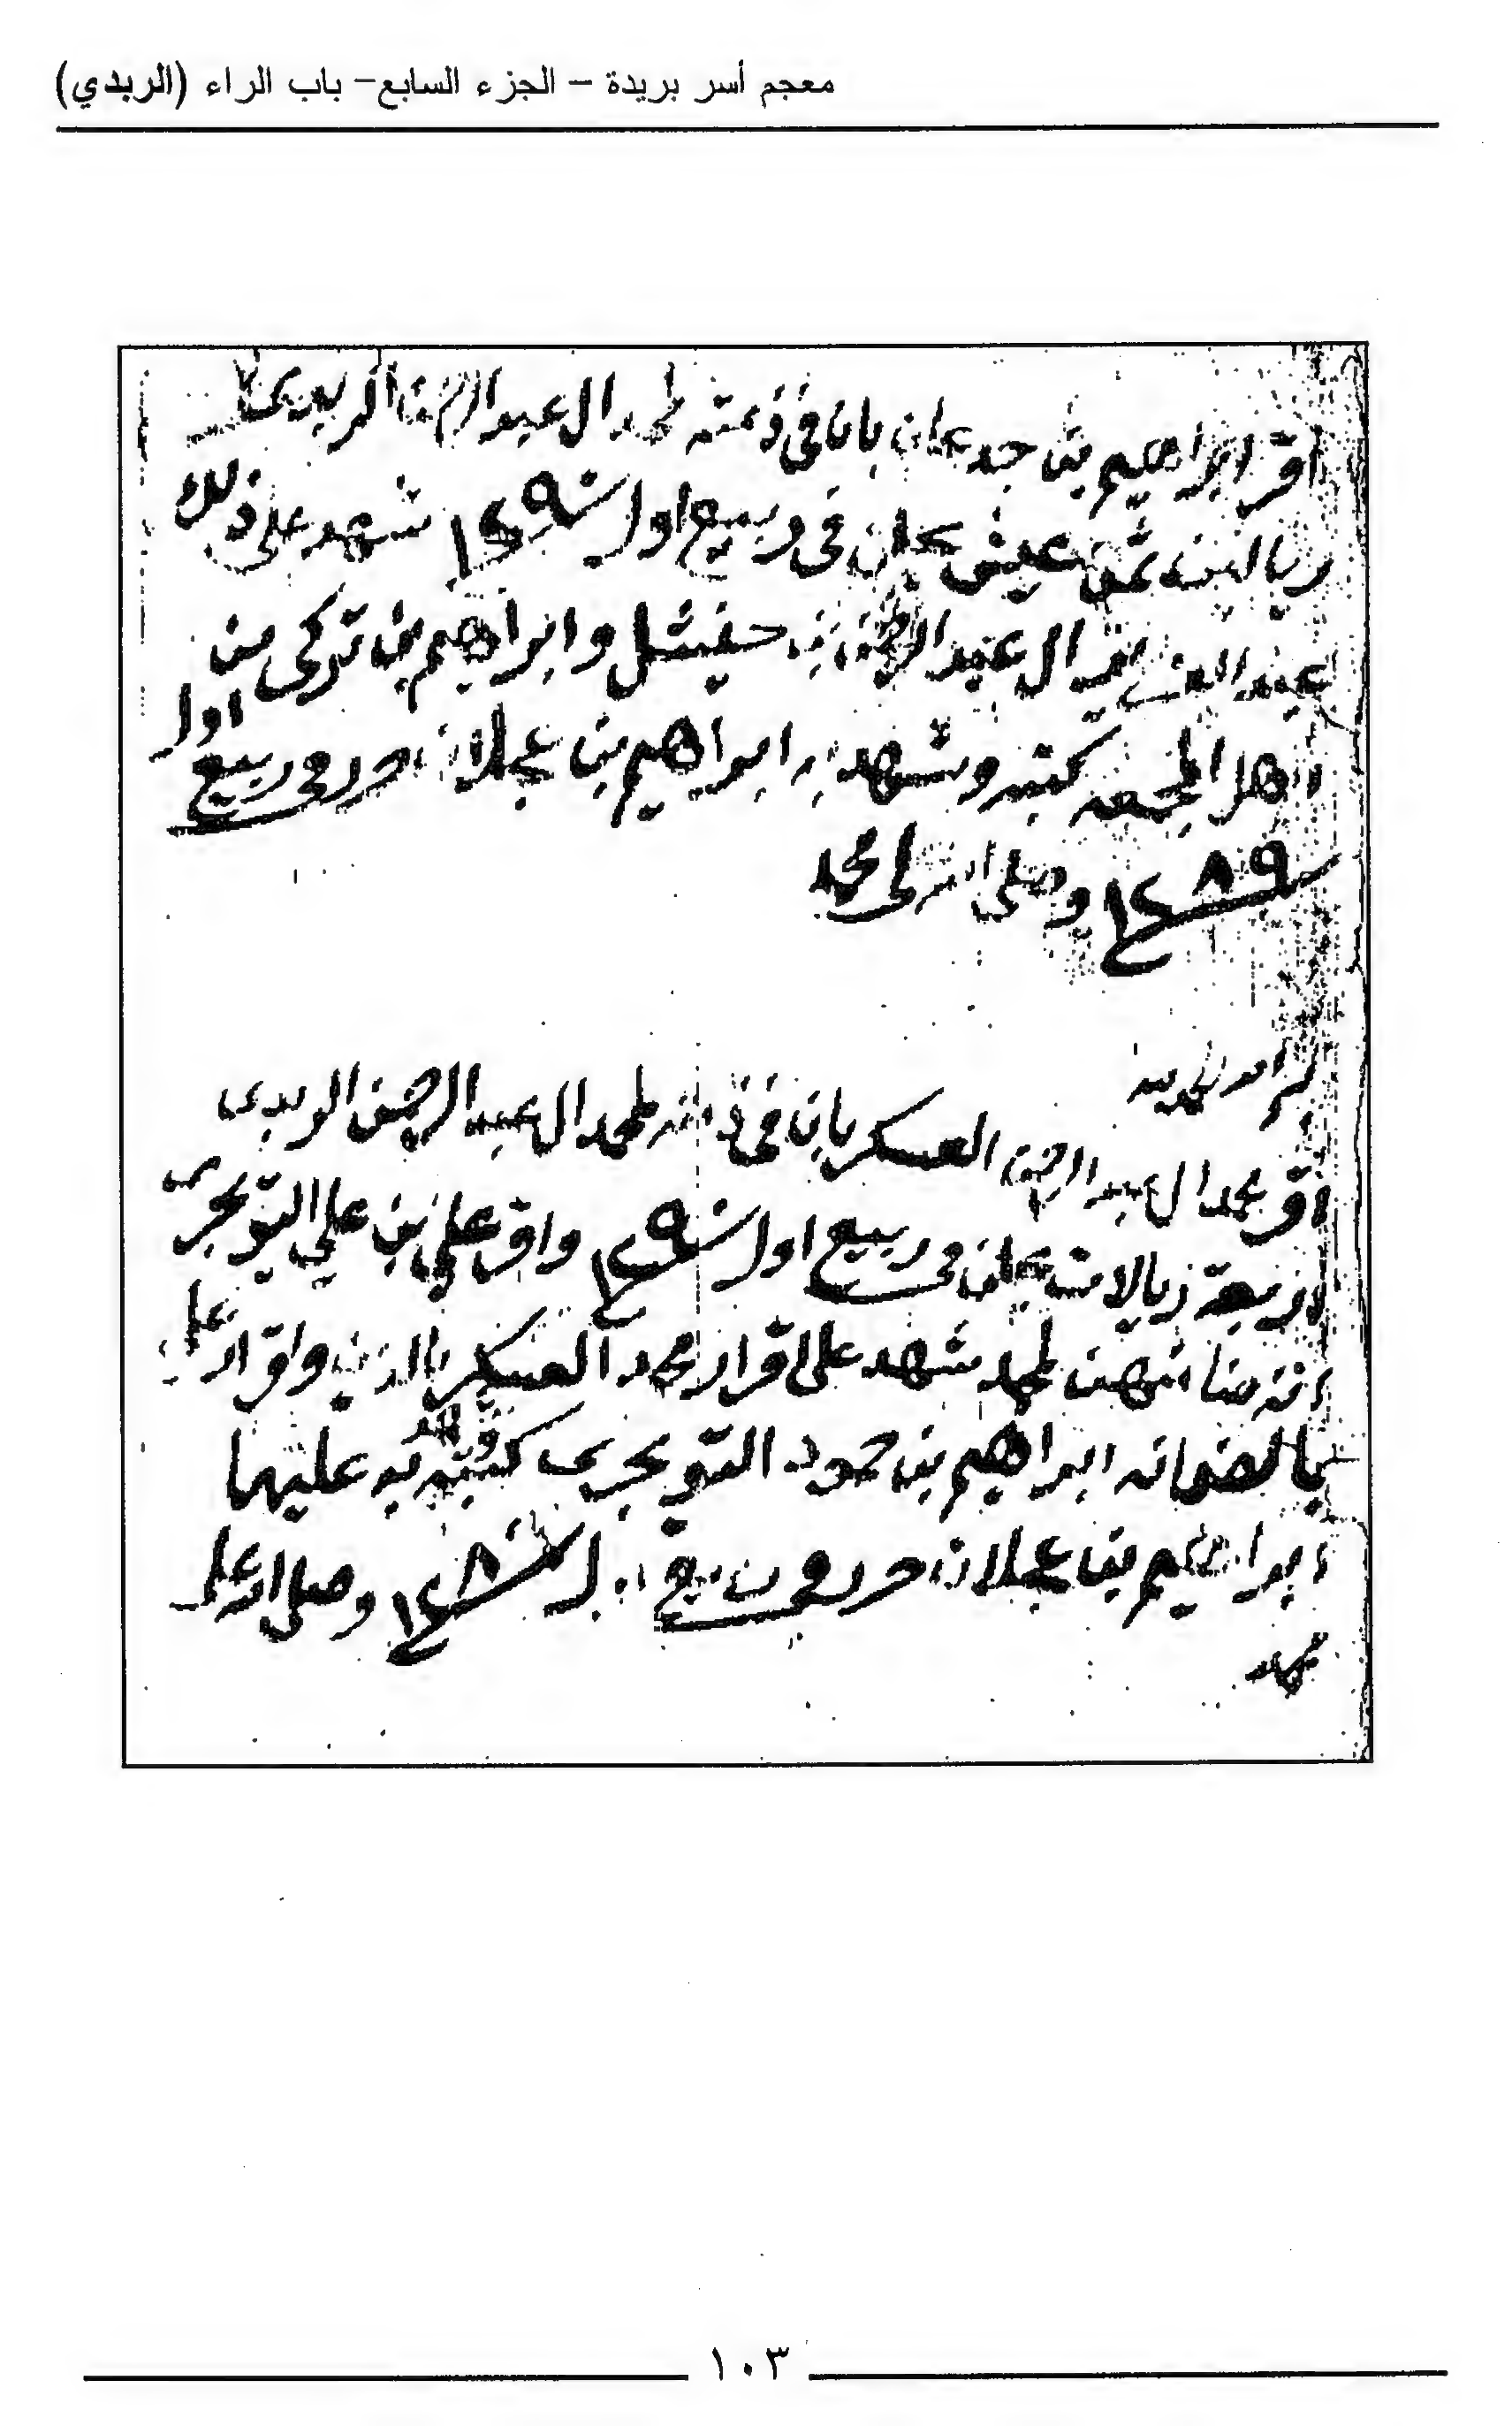 معجم أسر بريدة – الجزء السابع– باب الراء (الربدي)
اقر ابراهيم بن جدعان بان في ذمته لمحمد ال عبدالرحمن الربدي
ريالين ثمن عيش يحلن في ربيع اول سنة ١٢٩ شهد على ذلك
عبد ال عبد الرحمن بن حنيشل وابراهيم بن تركي من
اهل المجمعه كتبه وشهد به ابراهيم بن عجلان حرر في ربيع اول
١٢٨٩ وصلى الله على محمد
الحمد لله
اقر محمد ال عبد الرحمن العسكر بان في ذمته لمحمد ال عبد الرحمن الربدي
اربعة ريالات يحلن في ربيع اول سنة ١٢٩ واقر علي بن علي التويجري
انه ضامنهن لمحمد شهد على اقرار محمد العسكر بالدين واقرار علي
بالضمانه ابراهيم بن حمود التويجري كتبه وشهد به عليهما
ابراهيم بن عجلان حرر في ربيع اول سنة ١٢٨ وصلى الله على
محمد
١٠٣